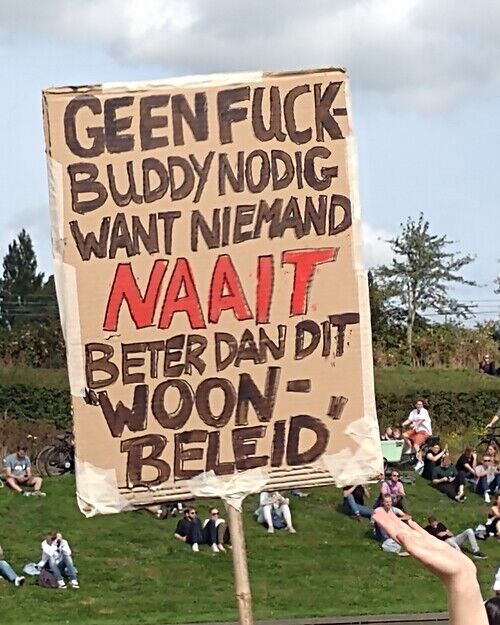 GEEN FUCK-
BUDDY NODIG
WANT NIEMAND
NAAIT
BETER DAN DIT
"WOON-
BELEID"